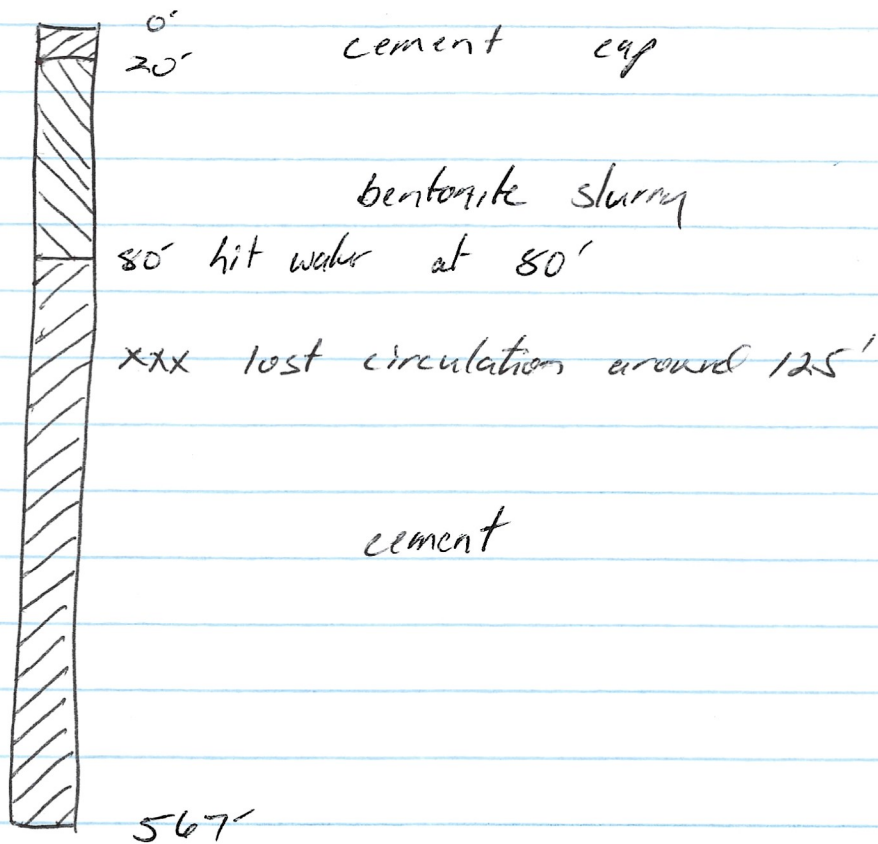 0'
cement cap
20'
bentonite slurry
80' hit water at 80'
xxx lost circulation around 125'
cement
567'